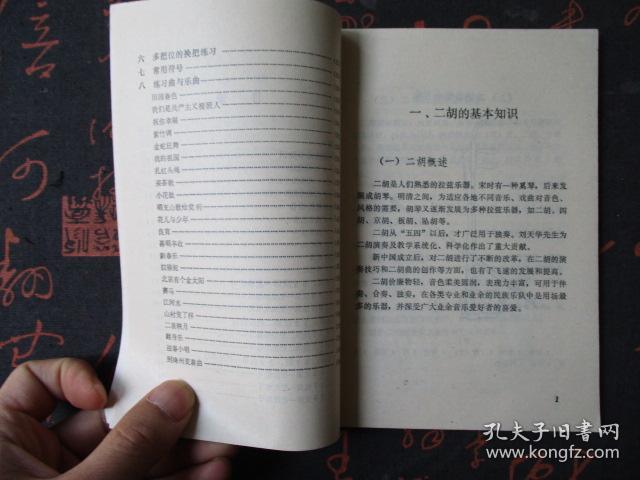 六 多把位的换把练习
七 常用符号
八 练习曲与乐曲
田园春色
我们是共产主义接班人
祝你幸福
紫竹调
金蛇狂舞
我的祖国
扎红头绳
采茶歌
小花鼓
花儿与少年
良宵
喜唱丰收
新春乐
北京有个金太阳
赛马
江河水
山村变了样
二泉映月
一、二胡的基本知识
（一）二胡概述
二胡是人们熟悉的拉弦乐器。宋时有一种奚琴，后来发
展成胡琴。明清之间，为适应各地不同音乐、戏曲对音色、
风格的需要，胡琴又逐渐发展为多种拉弦乐器，如二胡、四
胡、京胡、板胡、坠胡等。
二胡从“五四”以后，才广泛用于独奏。刘天华先生为
二胡演奏及教学系统化、科学化作出了重大贡献。
新中国成立后，对二胡进行了不断的改革。在二胡的演
奏技巧和二胡曲的创作等方面，也有了飞速的发展和提高。
二胡价廉物轻，音色柔美圆润，表现力丰富，可用于伴
奏、合奏、独奏。在各类专业和业余的民族乐队中是用场最
多的乐器，并深受广大业余音乐爱好者的喜爱。
1
孔夫子旧书网